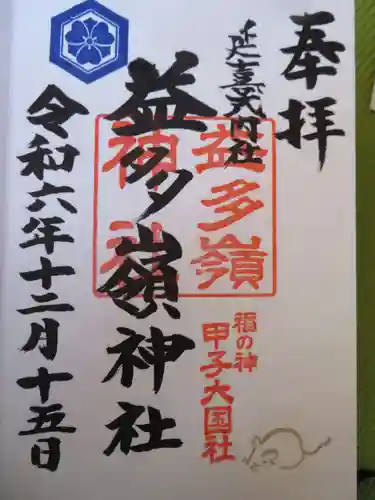 奉拝
延喜式内社
益多嶺神社
益多嶺
神社
福の神
甲子大国社
令和六年十二月十五日